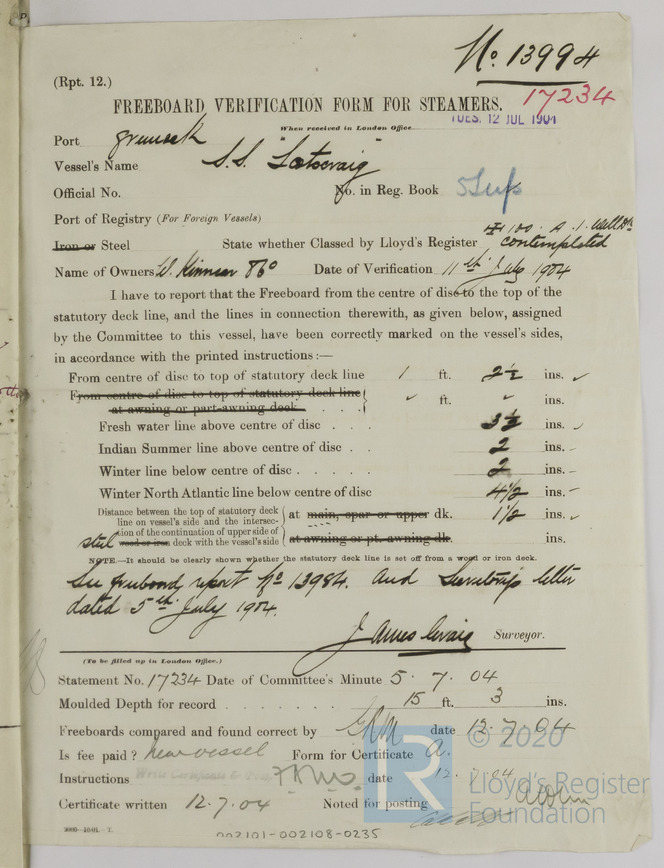 No. 13994
(Rpt. 12.)
17234
FREEBOARD VERIFICATION FORM FOR STEAMERS.
When received in London Office TUES. 12 JUL 1904
Port Greenock
Vessel's Name S.S. Lotscraig
Official No. No. in Reg. Book 5 Sup
Port of Registry (For Foreign Vessels)
✠ 100. A. 1.
Iron or Steel State whether Classed by Lloyd's Register contemplated
Name of Owners W. Kinnear & Co Date of Verification 11th July 1904
I have to report that the Freeboard from the centre of disc to the top of the
statutory deck line, and the lines in connection therewith, as given below, assigned
by the Committee to this vessel, have been correctly marked on the vessel's sides,
in accordance with the printed instructions :—
From centre of disc to top of statutory deck line 1 ft. 2½ ins.
From centre of disc to top of statutory deck line
at awning or part-awning deck . . . . ft. ins.
Fresh water line above centre of disc . 3½ ins.
Indian Summer line above centre of disc . . 2 ins.
Winter line below centre of disc . . . . . 2 ins.
Winter North Atlantic line below centre of disc 4½ ins.
Distance between the top of statutory deck
line on vessel's side and the intersec-
tion of the continuation of upper side of
steel wood or iron deck with the vessel's side
at main, spar or upper dk. 1½ ins.
at awning or pt. awning dk. ins.
NOTE.—It should be clearly shown whether the statutory deck line is set off from a wood or iron deck.
See freeboard report No 13984. and Secretary's letter
dated 5th July 1904.
James Craig Surveyor.
(To be filled up in London Office.)
Statement No. 17234 Date of Committee's Minute 5. 7. 04
Moulded Depth for record . . . . . . . 15 ft. 3 ins.
Freeboards compared and found correct by date 12.7.04
Is fee paid? New vessel Form for Certificate A.
Instructions date 12.7.04
Certificate written 12.7.04 Noted for posting
© 2020
Lloyd's Register
Foundation
002101-002108-0235